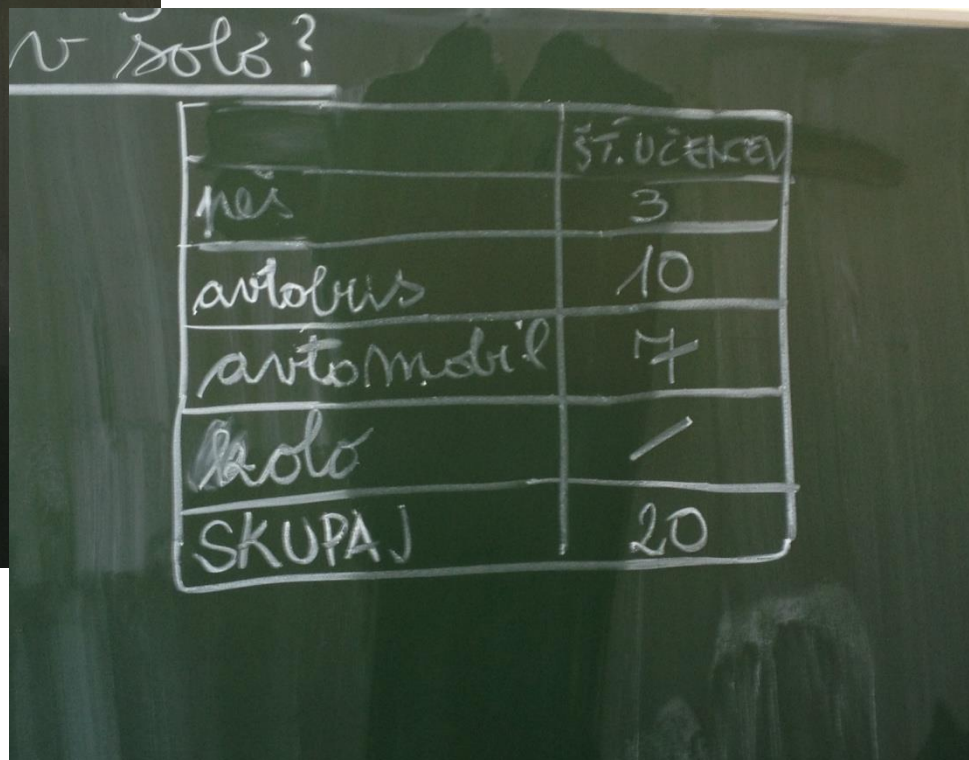 v šolo?
ŠT. UČENCEV
peš 3
avtobus 10
avtomobil 7
kolo /
SKUPAJ 20